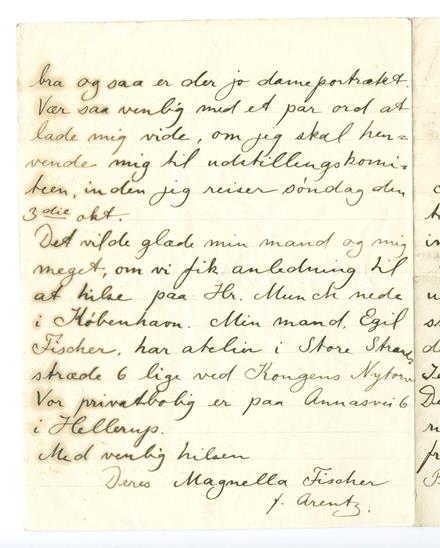 bra og saa er der jo dameportrætet.
Vær saa venlig med et par ord at
lade mig vide, om jeg skal hen=
vende mig til udstillingskomi=
teen, inden jeg reiser søndag den
3die okt.
Det vilde glæde min mand og mig
meget, om vi fik anledning til
at hilse paa Hr. Munch nede
i København. Min mand, Egil
Fischer, har atelier i Store Strand
stræde 6 lige ved Kongens Nytorv.
Vor privatbolig er paa Annasvei 6
i Hellerup.
Med venlig hilsen
Deres Magnella Fischer
f. Arentz.